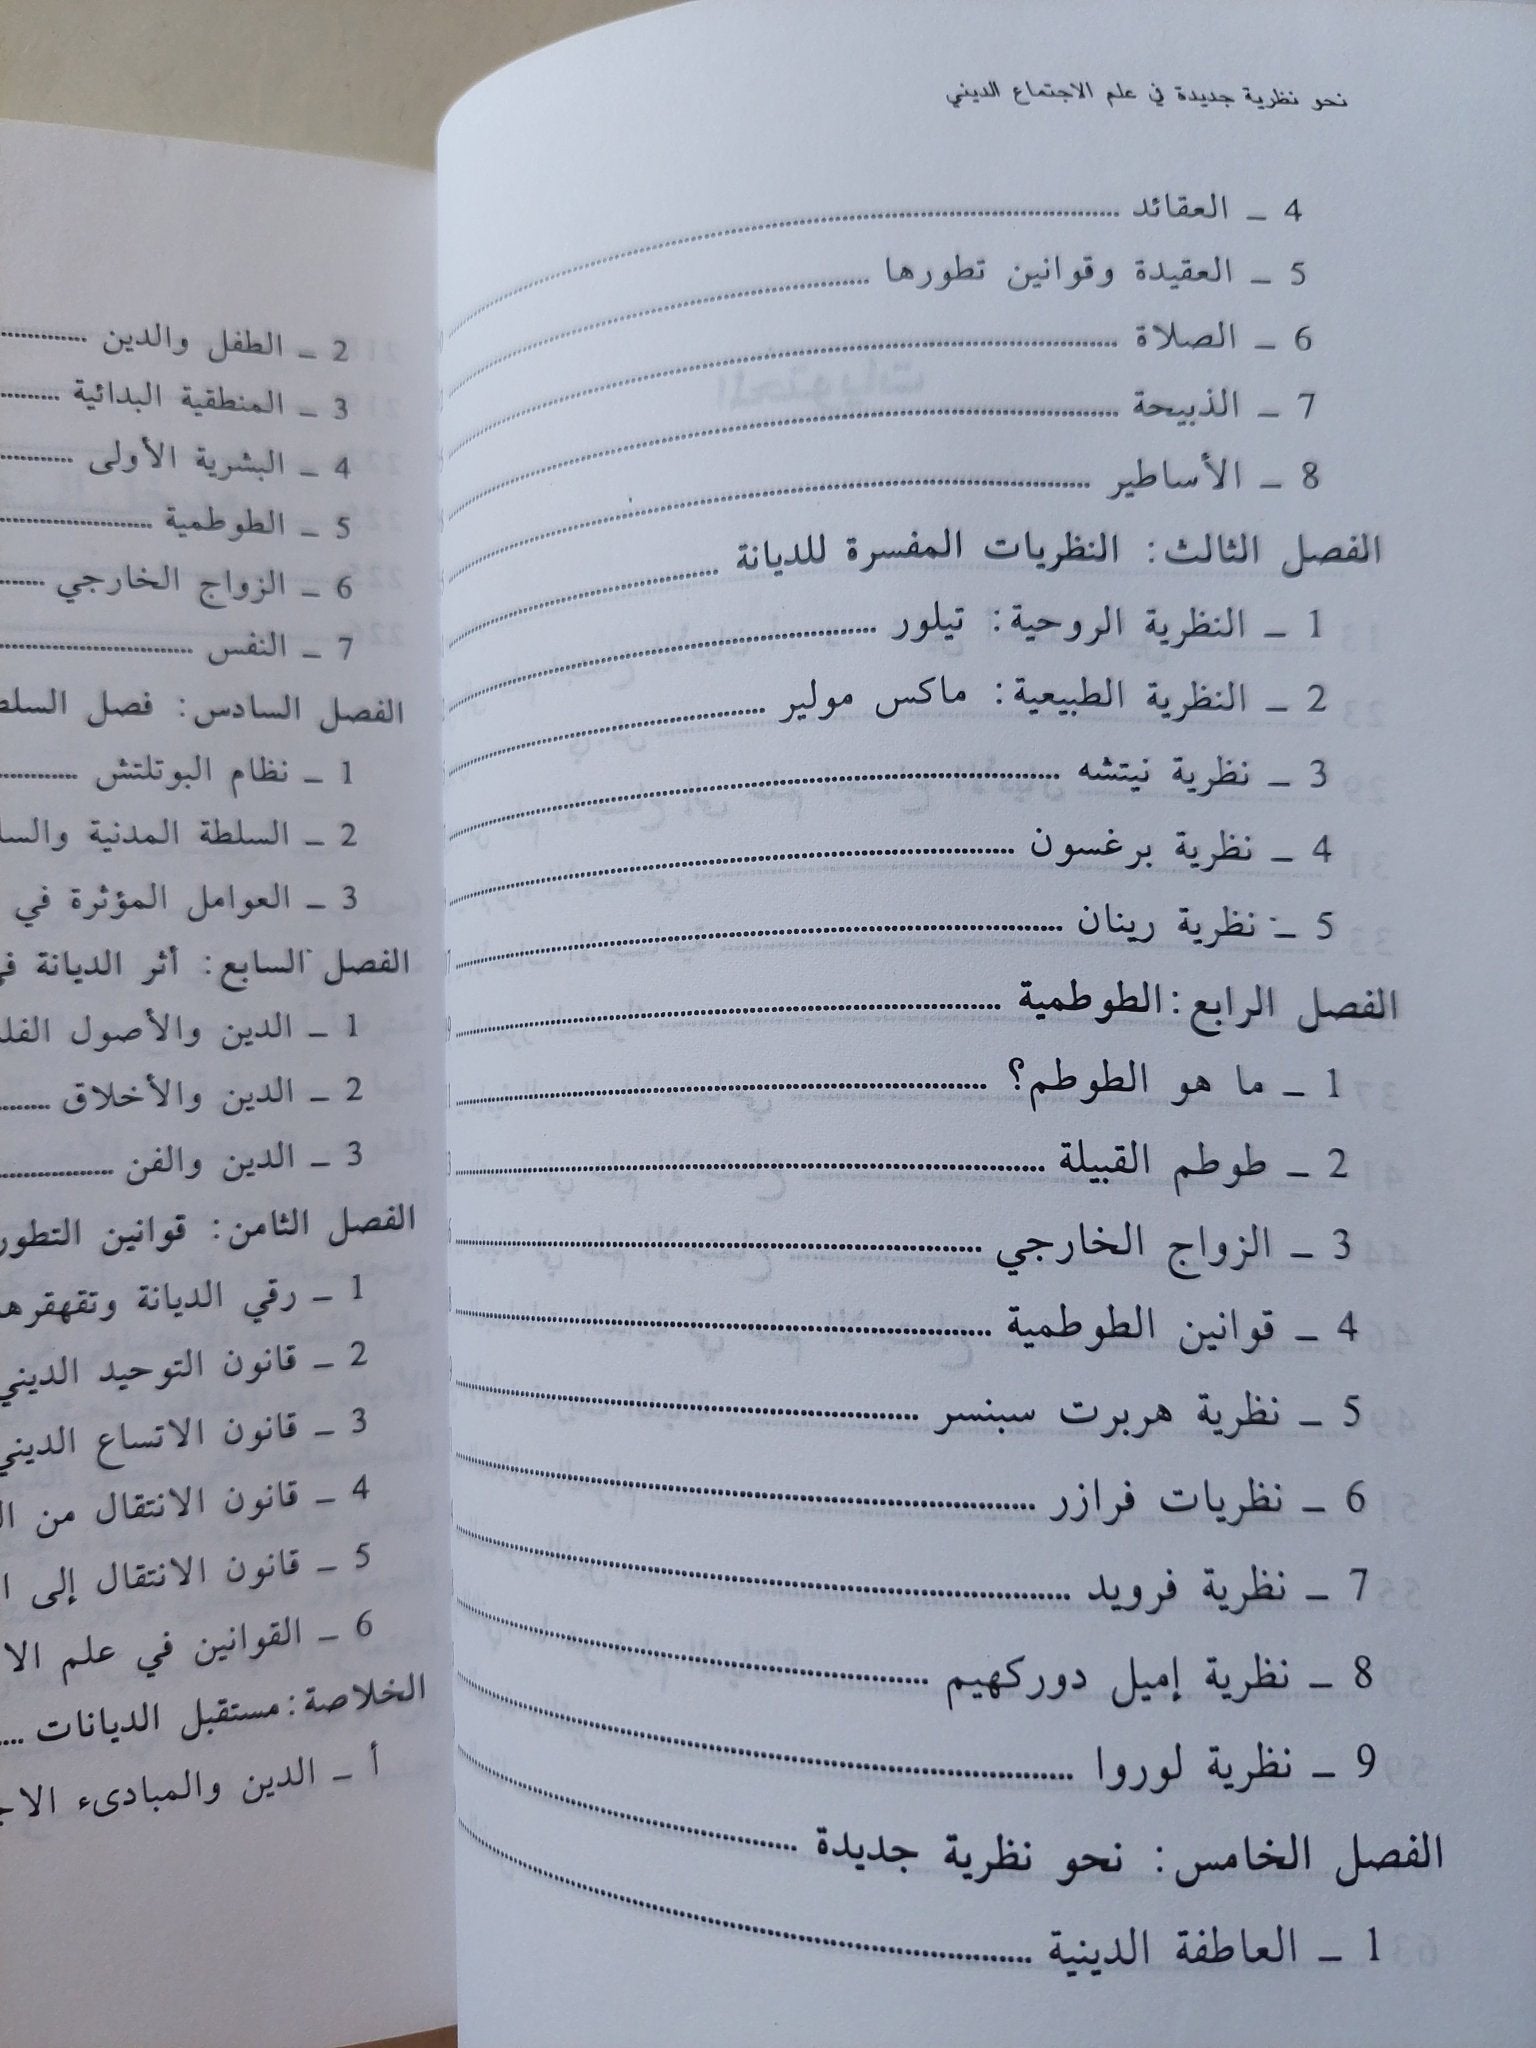 نحو نظرية جديدة في علم الاجتماع الديني
4 ـ العقائد
5 ـ العقيدة وقوانين تطورها
6 ـ الصلاة
7 ـ الذبيحة
8 ـ الأساطير
الفصل الثالث: النظريات المفسرة للديانة
1 ـ النظرية الروحية: تيلور
2 ـ النظرية الطبيعية: ماكس مولير
3 ـ نظرية نيتشه
4 ـ نظرية برغسون
5 ـ نظرية رينان
الفصل الرابع: الطوطمية
1 ـ ما هو الطوطم؟
2 ـ طوطم القبيلة
3 ـ الزواج الخارجي
4 ـ قوانين الطوطمية
5 ـ نظرية هربرت سبنسر
6 ـ نظريات فرازر
7 ـ نظرية فرويد
8 ـ نظرية إميل دوركهيم
9 ـ نظرية لوروا
الفصل الخامس: نحو نظرية جديدة
1 ـ العاطفة الدينية
2 ـ الطفل والدين
3 ـ المنطقية البدائية
4 ـ البشرية الأولى
5 ـ الطوطمية
6 ـ الزواج الخارجي
7 ـ النفس
الفصل السادس: فصل
1 ـ نظام البوتلتش
2 ـ السلطة المدنية
3 ـ العوامل المؤثرة في
الفصل السابع: أثر الديانة
1 ـ الدين والأصول
2 ـ الدين والأخلاق
3 ـ الدين والفن
الفصل الثامن: قوانين التطور
1 ـ رقي الديانة
2 ـ قانون التوحيد الديني
3 ـ قانون الاتساع الديني
4 ـ قانون الانتقال من
5 ـ قانون الانتقال إلى
6 ـ القوانين في علم
الخلاصة: مستقبل الديانات
أ ـ الدين والمبادىء